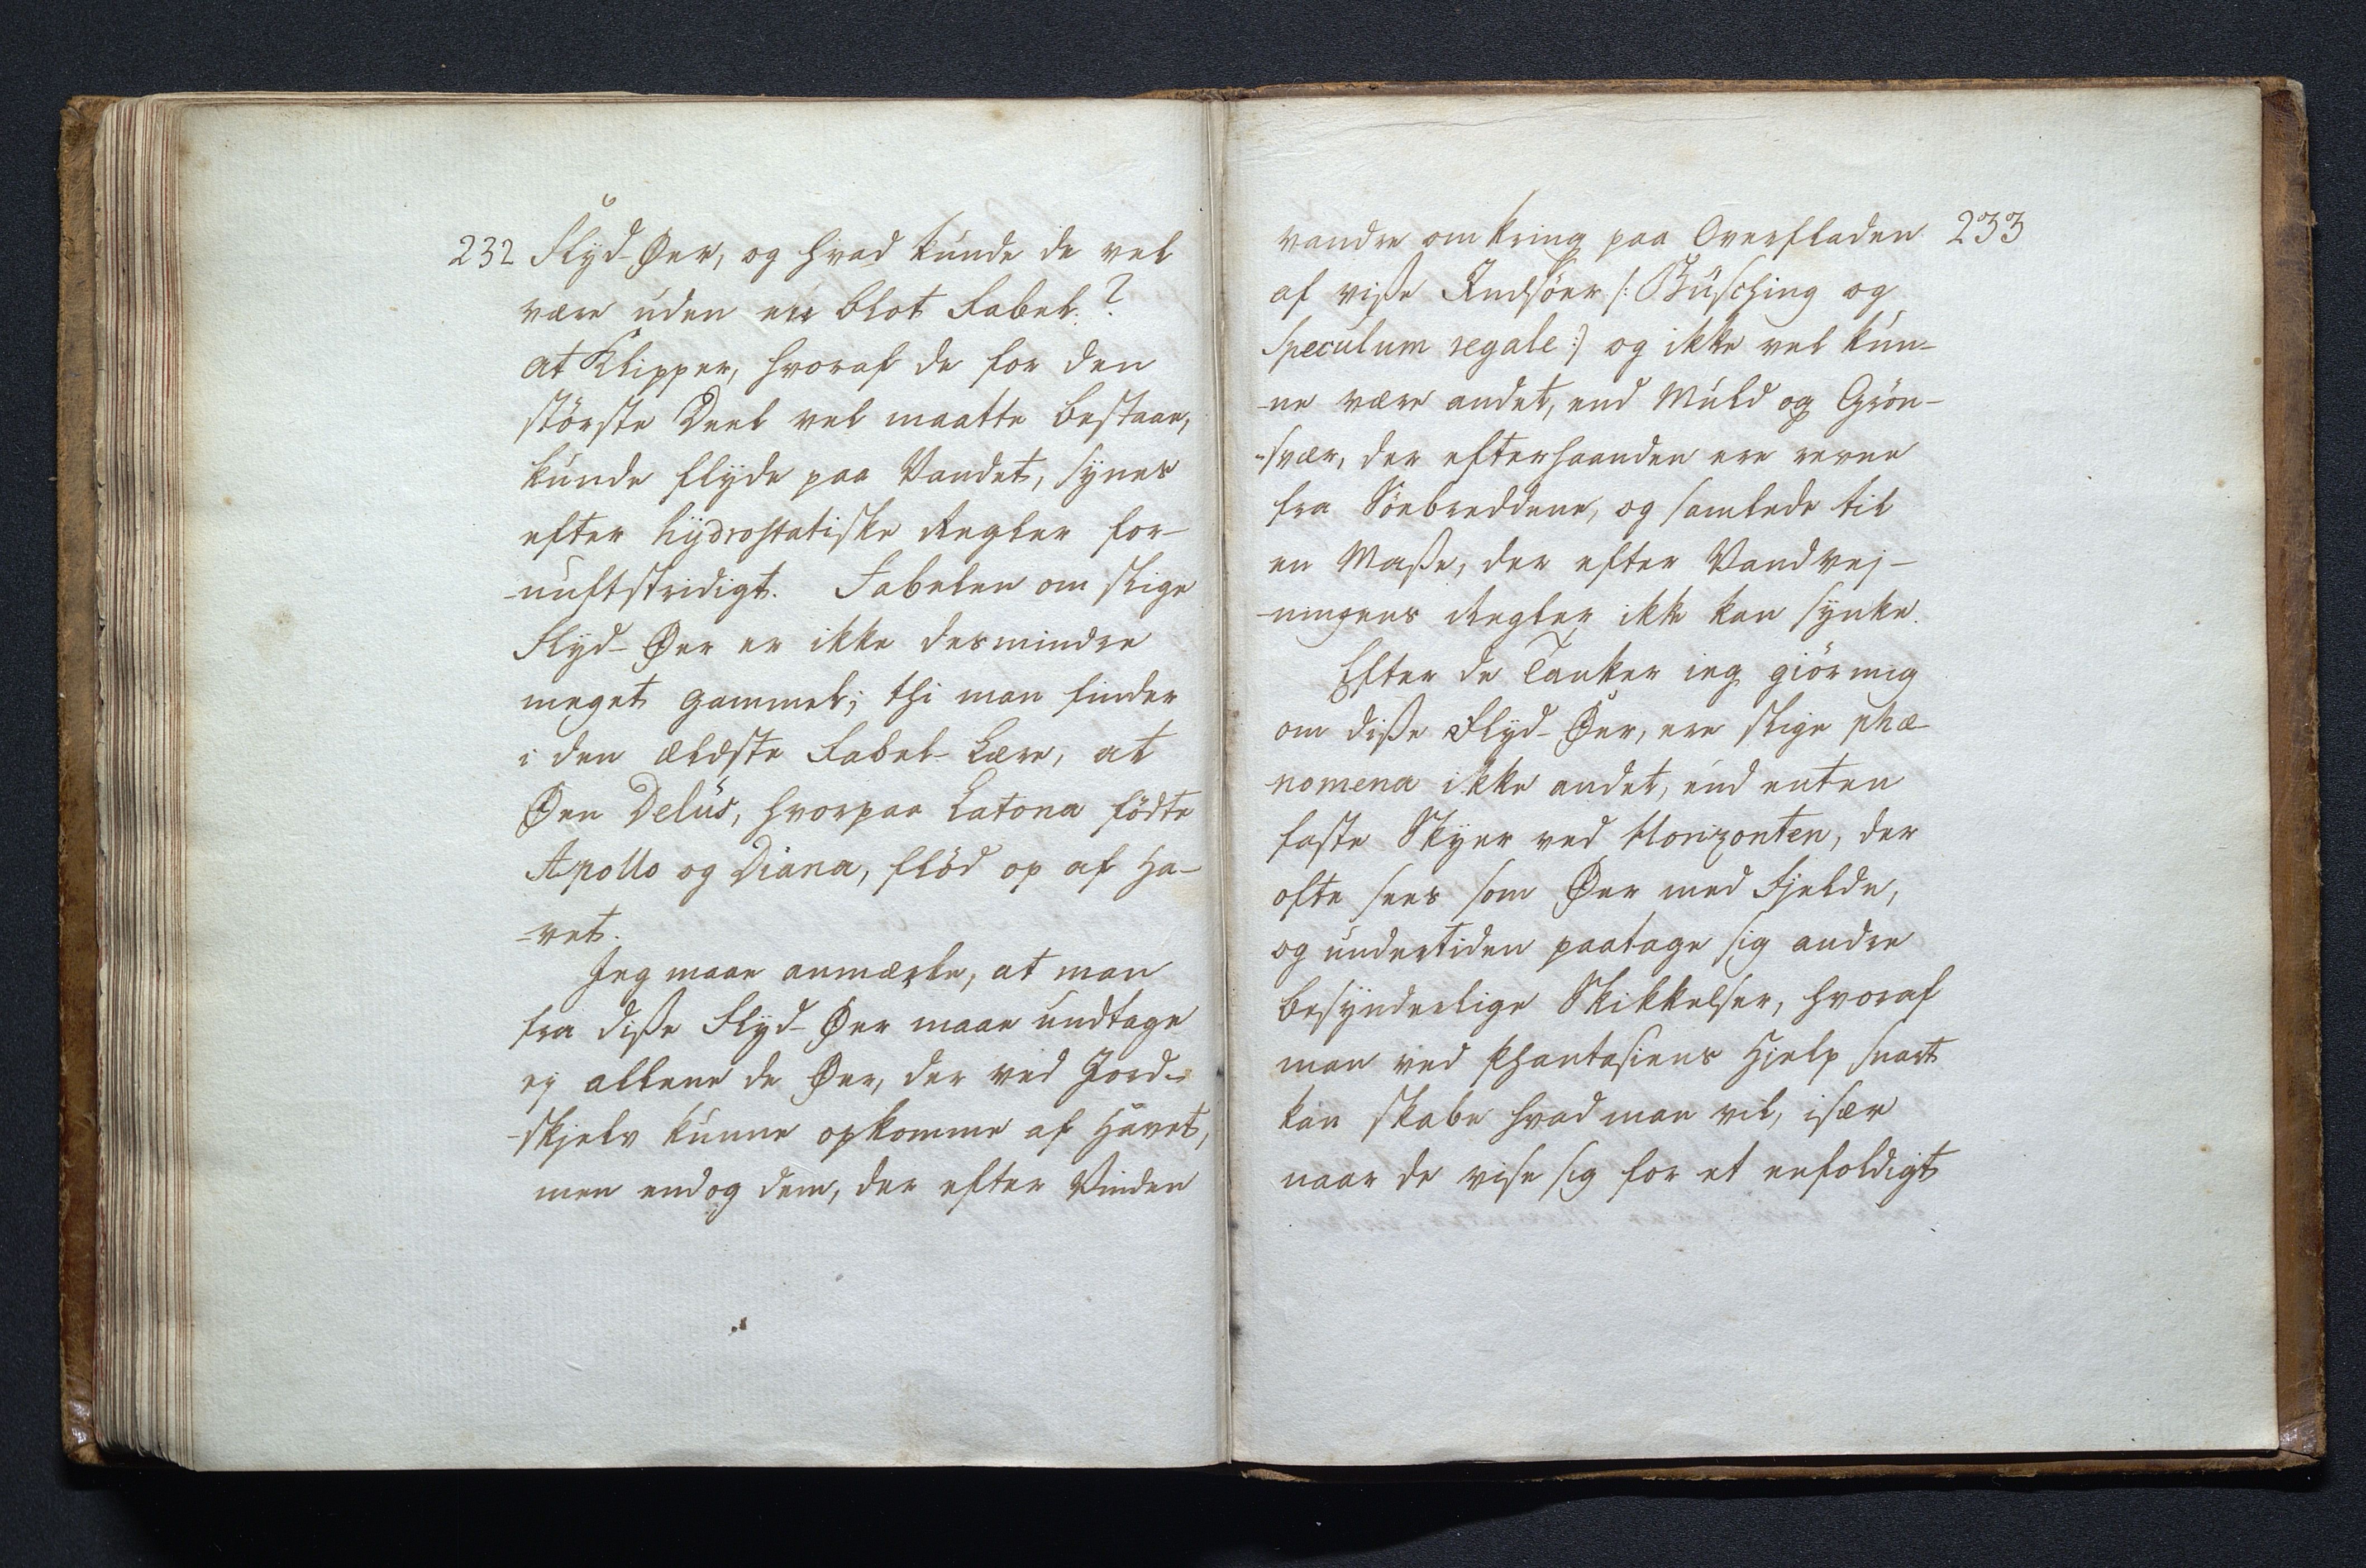 232 Flyd-Øer, og hvad kunde de vel
være uden en blot Fabel?
At Klipper, hvoraf de for den
störste Deel vel maatte bestaae,
kunde flyde paa Vandet, synes
efter hydrostatiske Regler for-
-nuftstridigt. Fabelen om slige
Flyd-Øer er ikke desmindre
meget gammel; thi man finder
i den ældste Fabel-Lære, at
Øen Delus, hvorpaa Latona födte
Apollo og Diana, flöd op af Ha-
-vet.
Jeg maae anmærke, at man
fra disse Flyd-Øer maae undtage
ej allene de Øer, der ved Jord-
-skjelv kunne opkomme af Havet,
men endog dem, der efter Vinden
vandre omkring paa Overfladen 233
af visse Indsöer /: Büsching og
Speculum regale :/ og ikke vel kun-
-ne være andet, end Muld og Grön-
-svær, der efterhaanden ere revne
fra Söebreddene, og samlede til
en Masse, der efter Vandvej-
-ningens Regler ikke kan synke.
Efter de Tanker jeg giör mig
om disse Flyd-Øer, ere slige phæ-
-nomena ikke andet, end enten
faste Skyer ved Horizonten, der
ofte sees som Øer med Fjelde,
og undertiden paatage sig andre
besynderlige Skikkelser, hvoraf
man ved Phantasiens Hjelp snart
kan skabe hvad man vil, især
naar de vise sig for et enfoldigt